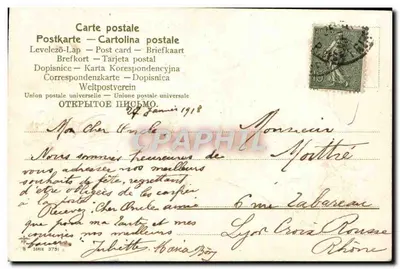 Carte postale
Postkarte — Cartolina postale
Levelező-Lap — Post card — Briefkaart
Brefkort — Tarjeta postal
Dopisnice — Karta Korespondencyjna
Correspondenzkarte — Dopisnica
Weltpostverein
Union postale universelle — Unione postale universale
ОТКРЫТОЕ ПИСЬМО.
24 Janvier 1918
Mon Cher Oncle
Nous sommes heureuses de
vous adresser nos meilleurs
souhaits de fête, regrettant
d'être obligées de les confier
à la poste
Recevez Cher Oncle ainsi
que ma Tante et mes
cousins nos meilleurs
Juliette Maria
Monsieur
Mottré
6 rue Tabareau
Lyon Croix Rousse
Rhône
CPARAMA